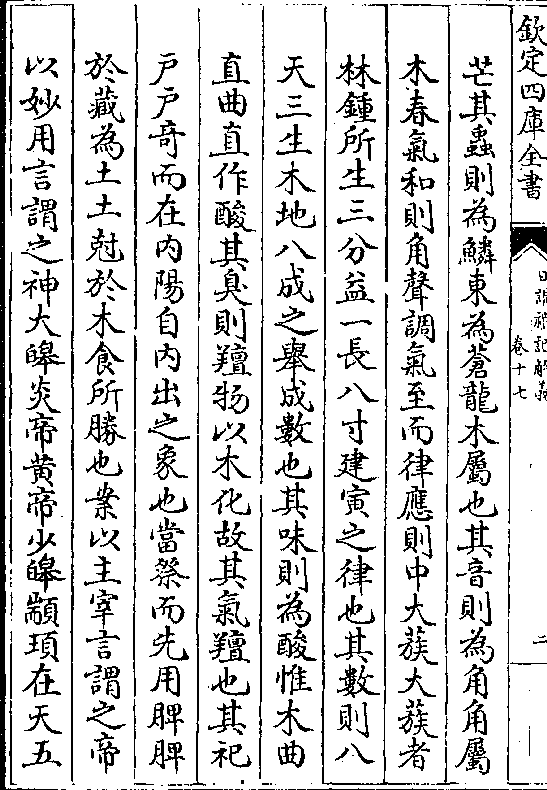 欽定四庫全書
日講禮記解義
卷十七
二
芒其蟲則為鱗東為蒼龍木屬也其音則為角角屬
木春氣和則角聲調氣至而律應則中大蔟大蔟者
林鍾所生三分益一長八寸建寅之律也其數則八
天三生木地八成之舉成數也其味則為酸惟木曲
直曲直作酸其臭則羶物以木化故其氣羶也其祀
戸戸奇而在内陽自内出之象也當祭而先用脾脾
於藏為土土尅於木食所勝也案以主宰言謂之帝
以妙用言謂之神大皥炎帝黄帝少皥顓頊在天五